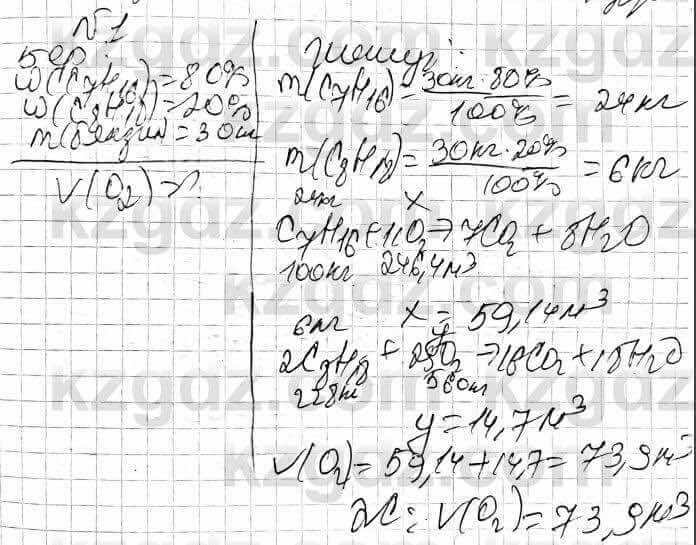 №1
Бер:
w(C₇H₁₆)=80%
w(C₈H₁₈)=20%
m(бензин)=30кг
V(O₂)=?
Шешуі:
m(C₇H₁₆)=30кг·80%/100%=24кг
m(C₈H₁₈)=30кг·20%/100%=6кг
24кг x
C₇H₁₆+11O₂→7CO₂+8H₂O
100кг 246,4м³
x=59,14м³
6кг y
2C₈H₁₈+25O₂→16CO₂+18H₂O
228кг 560м
y=14,7м³
V(O₂)=59,14+14,7=73,9м³
Ж: V(O₂)=73,9м³
kzgdz.com